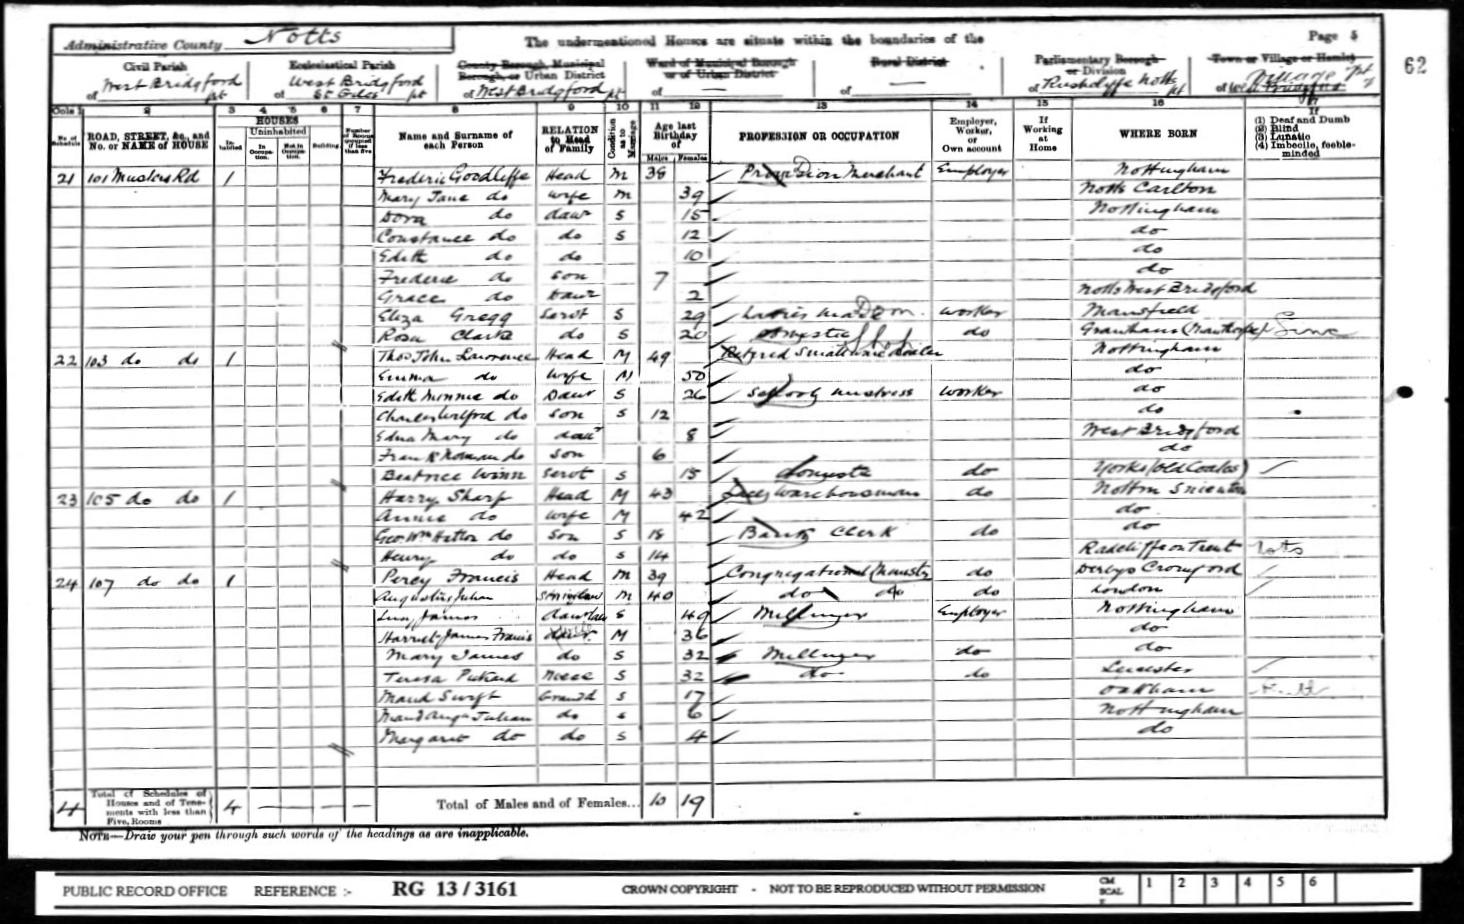 Administrative County Notts The undermentioned Houses are situate within the boundaries of the Page 5
62
Civil Parish Ecclesiastical Parish County Borough, Municipal Borough, or Urban District Ward of Municipal Borough or of Urban District Rural District Parliamentary Borough or Division Town or Village or Hamlet
of West Bridgford pt of West Bridgford St Giles pt of West Bridgford pt of — of — of Rushcliffe Notts pt of Village pt
Cols 1 2 3 4 5 6 7 8 9 10 11 12 13 14 15 16 17
No. of Schedule ROAD, STREET, &c., and No. or NAME of HOUSE HOUSES Inhabited Uninhabited In Occupation. Not in Occupation. Building Number of Rooms occupied if less than five Name and Surname of each Person RELATION to Head of Family Condition as to Marriage Age last Birthday of Males Females PROFESSION OR OCCUPATION Employer, Worker, or Own account If Working at Home WHERE BORN (1) Deaf and Dumb (2) Blind (3) Lunatic (4) Imbecile, feeble-minded
21 101 Musters Rd 1 Frederic Goodliffe Head M 38 Provision Merchant Employer Nottingham
Mary Jane do wife M 39 Notts Carlton
Dora do daur S 15 Nottingham
Constance do do S 12 do
Edith do do 10 do
Frederic do son 7 do
Grace do Daur 2 Notts West Bridgford
Eliza Gregg Servt S 29 Ladies maid Dom. worker Mansfield
Rosa Clark do S 20 Domestic do Grantham
22 103 do do 1 Thos John Lawrence Head M 49 Retired Smallware Dealer Nottingham
Emma do wife M 50 do
Edith Minnie do Daur S 26 School mistress worker do
Charles Wilford do son S 12 do
Edna Mary do daur 8 West Bridgford
Frank Norman do son 6 do
Beatrice Winn Servt S 15 domestic do Yorks (Old Coates)
23 105 do do 1 Harry Sharp Head M 43 Lace Warehouseman do Nottm Sneinton
Annie do wife M 42 do
Geo. Wm Hatton do son S 18 Bank Clerk do do
Henry do do S 14 Radcliffe on Trent Notts
24 107 do do 1 Percy Francis Head M 39 Congregational Minister do Derbys Cromford
Augustus Julian son in law M 40 do do do London
Lucy James S 49 Milliner Employer Nottingham
Harriet James Francis M 36 do
Mary James do S 32 Milliner do do
Teresa Pickard Niece S 32 do do Leicester
Maud Swift Grand d S 17 Oakham
Maud Julian do S 6 Nottingham
Margaret do do S 4 do
4 Total of Schedules of Houses and of Tenements with less than Five Rooms 4 — — — — Total of Males and of Females... 10 19
NOTE—Draw your pen through such words of the headings as are inapplicable.
PUBLIC RECORD OFFICE REFERENCE :- RG 13 / 3161 CROWN COPYRIGHT - NOT TO BE REPRODUCED WITHOUT PERMISSION CM SCALE 1 2 3 4 5 6